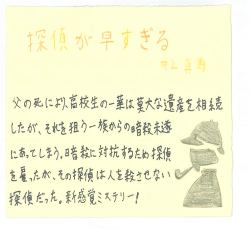 探偵が早すぎる
井上真偽
父の死により、高校生の一華は莫大な遺産を相続
したが、それを狙う一族からの暗殺未遂
にあってしまう。暗殺に対抗するため探偵
を雇ったが、その探偵は人を殺させない
探偵だった。新感覚ミステリー!